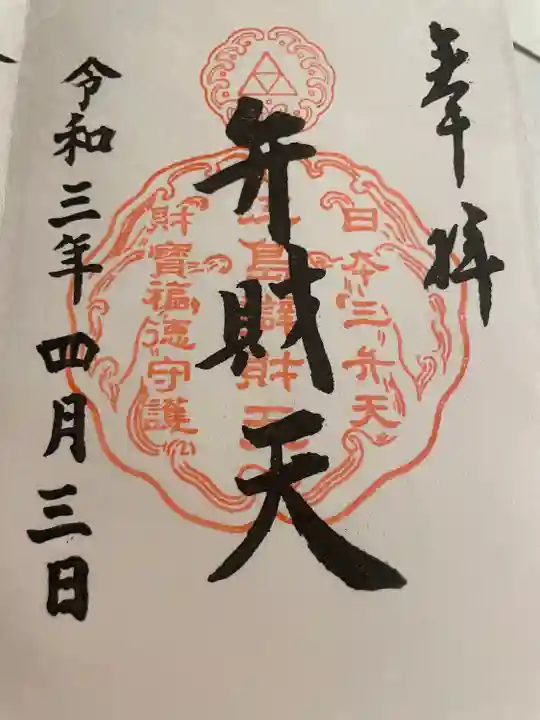 奉拝
日本三弁天
弁財天
島辯財天
財寶福徳守護
令和三年四月三日